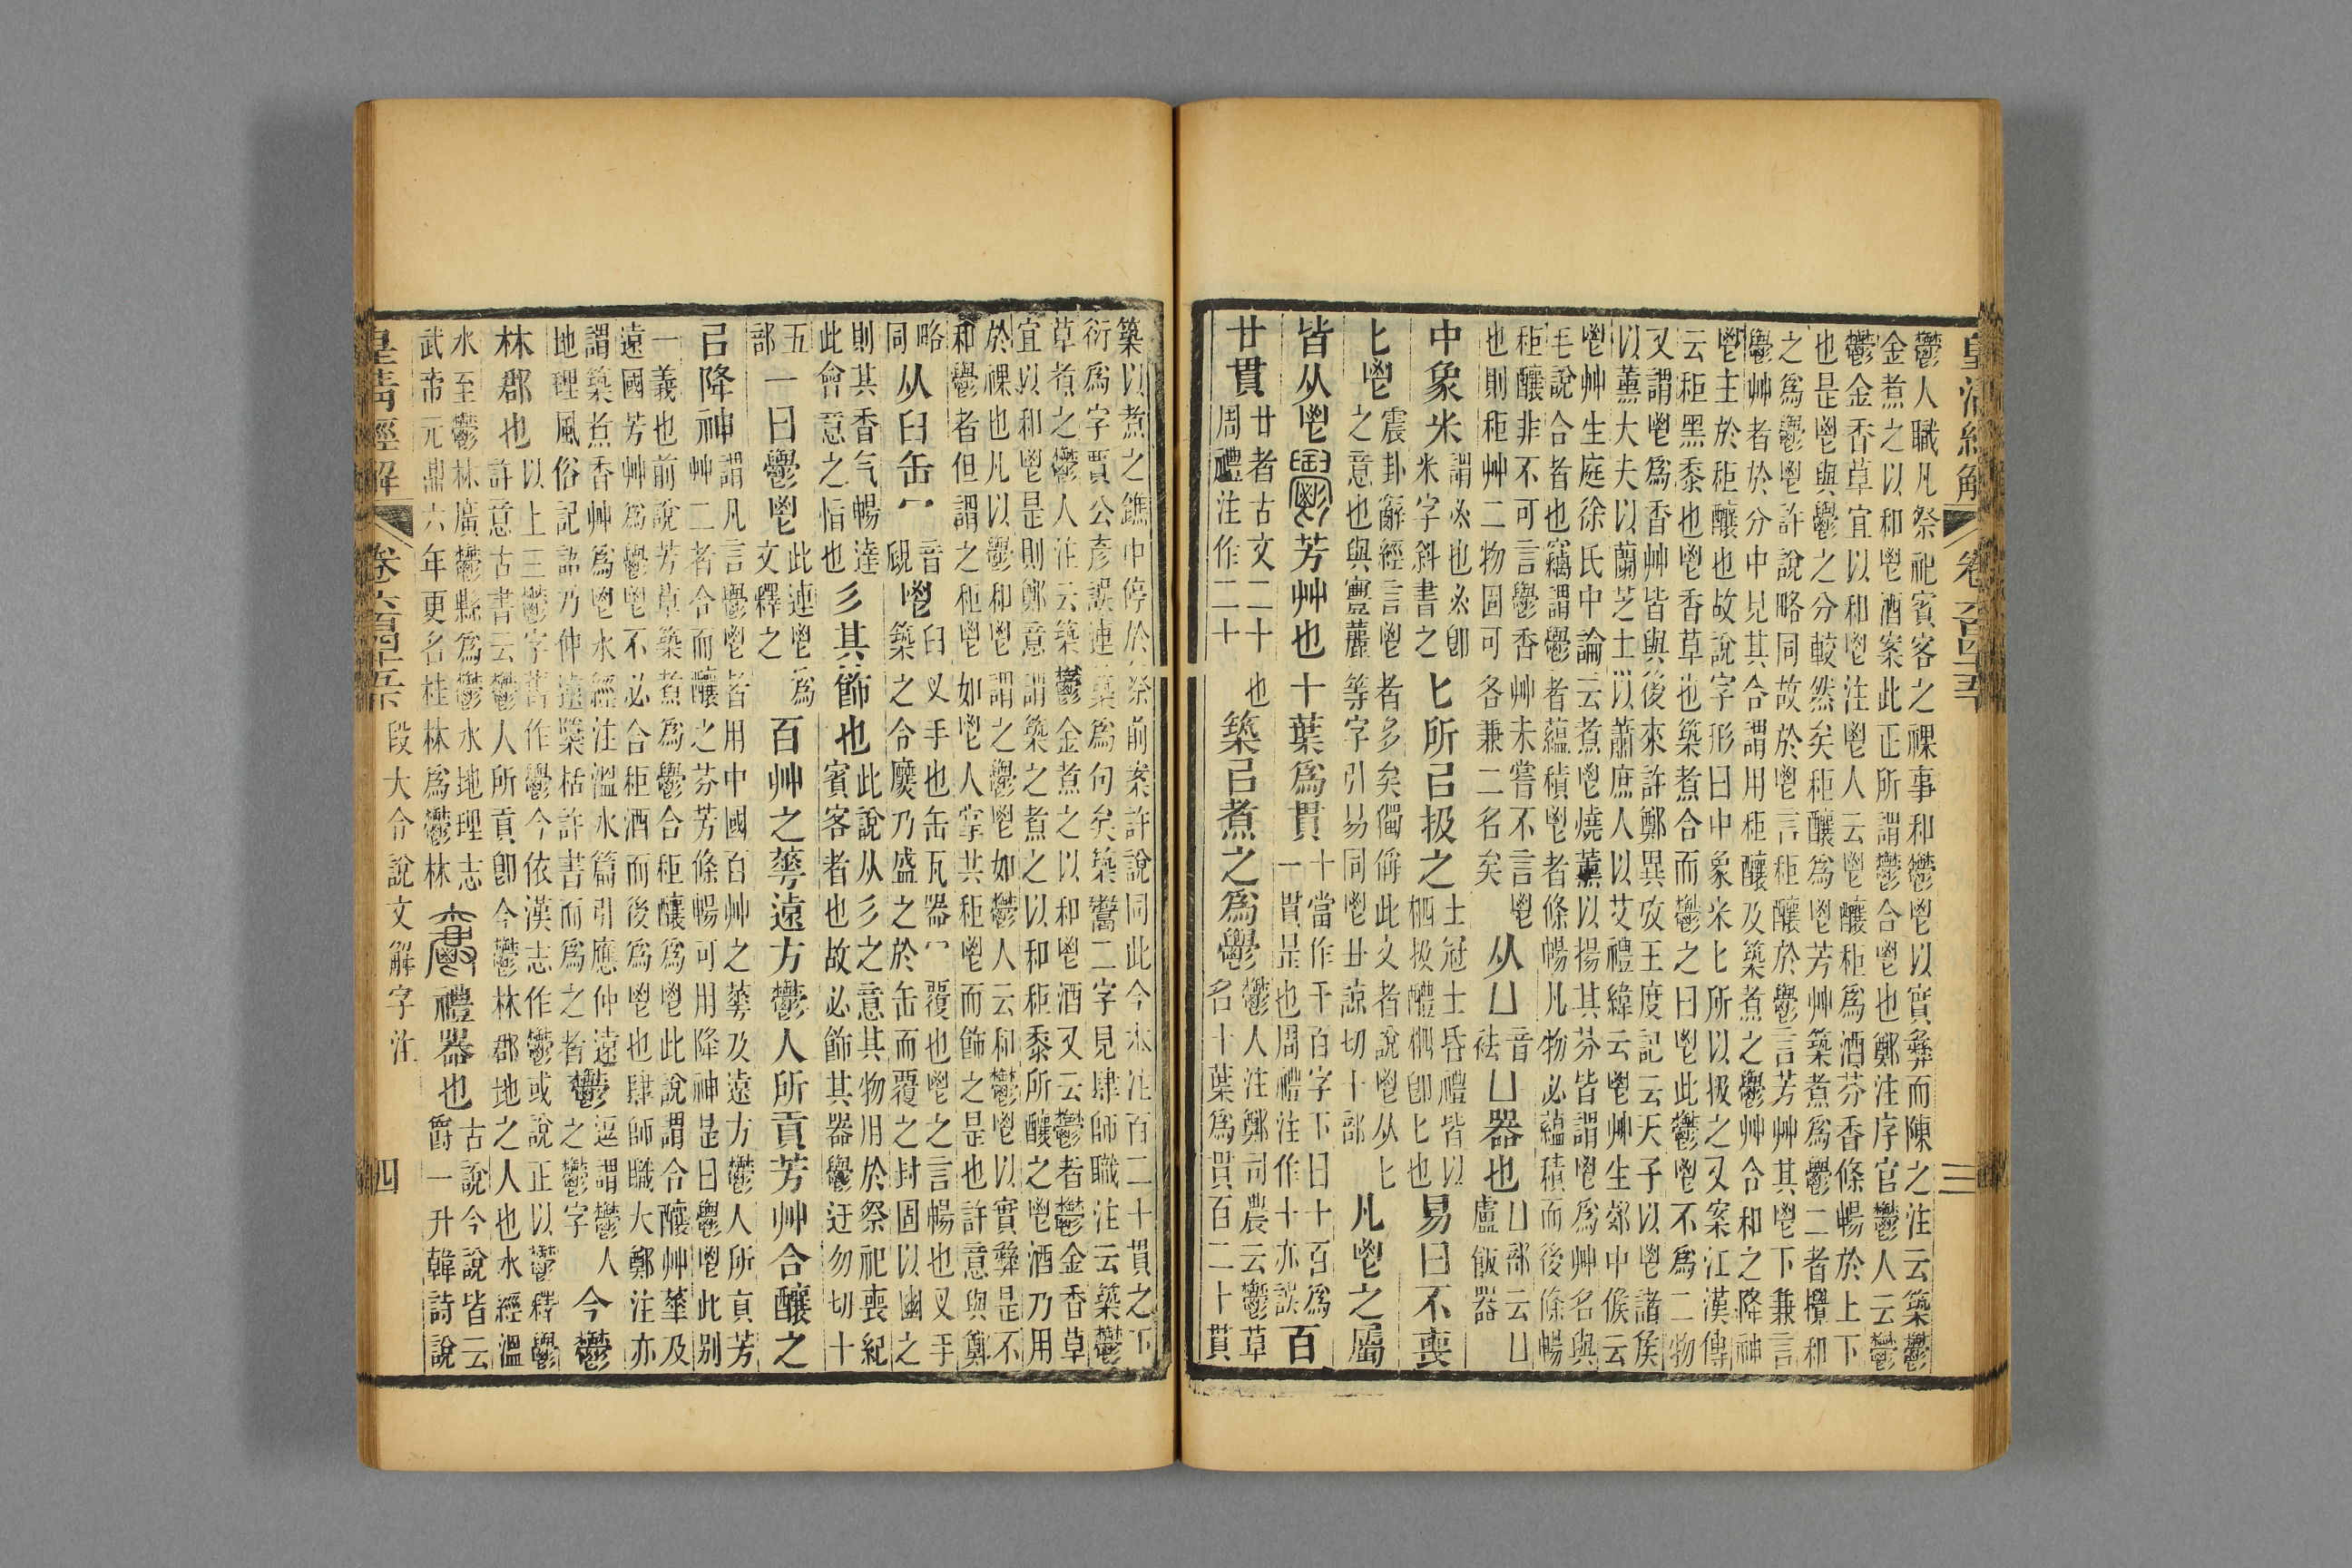 皇清經解 卷六百四十五 三
鬱人職凡祭祀賓客之祼事和鬱鬯以實彝而陳之注云築鬱
金煮之以和鬯酒案此正所謂鬱合鬯也鄭注序官鬱人云鬱
鬱金香草宜以和鬯注鬯人云鬯釀秬爲酒芬香條暢於上下
也是鬯與鬱之分較然矣秬釀爲鬯芳艸築煮爲鬱二者攪和
之爲鬱鬯許說略同故於鬯言秬釀於鬱言芳艸其鬯下兼言
鬱艸者於分中見其合謂用秬釀及築煮之鬱艸合和之降神
鬯主於秬釀也故說字形曰中象米匕所以扱之又案江漢傳
云秬黑黍也鬯香草也築煮合而鬱之曰鬯此鬱鬯不爲二物
又謂鬯爲香艸皆與後來許鄭異攷王度記云天子以鬯諸矦
以薰大夫以蘭芝士以蕭庶人以艾禮緯云鬯艸生郊中候云
鬯艸生庭徐氏中論云煮鬯燒薰以揚其芬皆謂鬯爲艸名與
毛說合者也竊謂鬱者蘊積鬯者條暢凡物必蘊積而後條暢
秬釀非不可言鬱香艸未嘗不言鬯
也則秬艸二物固可各兼二名矣
从凵
音
祛
凵器也
凵部云凵
盧飯器
中象米
謂𠂭也𠂭卽
米字斜書之
匕所㠯扱之
士冠士昏禮皆以
柶扱醴柶卽匕也
易曰不喪
匕鬯
震卦辭經言鬯者多矣獨偁此文者說鬯从匕
之意也與豐麗等字引易同鬯丑諒切十部
凡鬯之屬
皆从鬯
芳艸也十葉爲貫
十當作千百字下曰十百爲
一貫是也周禮注作十亦誤
百
廿貫
廿者古文二十也
周禮注作二十
築㠯煮之爲鬱
鬱人注鄭司農云鬱草
名十葉爲貫百二十貫
築以煮之鐎中停於祭前案許說同此今本注百二十貫之下
衍爲字賈公彥誤連築爲句矣築鬻二字見肆師職注云築鬱
草煮之鬱人注云築鬱金煮之以和鬯酒又云鬱者鬱金香草
宜以和鬯是則鄭意謂築之煮之以和秬黍所釀之鬯酒乃用
於祼也凡以鬱和鬯謂之鬱鬯如鬱人云和鬱鬯以實彝是不
和鬱者但謂之秬鬯如鬯人掌共秬鬯而飾之是也許意與鄭
略
同
从臼缶冖
音
覛
鬯
臼叉手也缶瓦器冖覆也鬯之言暢也叉手
築之合糜乃盛之於缶而覆之封固以幽之
則其香气暢達
此會意之恉也
彡其飾也
此說从彡之意其物用於祭祀喪紀
賓客者也故必飾其器鬱迂勿切十
五
部
一曰鬱鬯
此連鬯爲
文釋之
百艸之華遠方鬱人所貢芳艸合釀之
㠯降神
謂凡言鬱鬯者用中國百艸之華及遠方鬱人所貢芳
艸二者合而釀之芬芳條暢可用降神是曰鬱鬯此别
一義也前說芳草築煮爲鬱合秬釀爲鬯此說謂合釀艸華及
遠國芳艸爲鬱鬯不必合秬酒而後爲鬯也肆師職大鄭注亦
謂築煮香艸爲鬯水經注溫水篇引應仲遠
地理風俗記語乃仲遠檃栝許書而爲之者
鬱
逗謂鬱人
之鬱字
今鬱
林郡也
以上三鬱字舊作鬱今依漢志作鬱或說正以鬱釋鬱
許意古書云鬱人所貢卽今鬱林郡地之人也水經溫
水至鬱林廣鬱縣爲鬱水地理志
武帝元鼎六年更名桂林爲鬱林
禮器也
古說今說皆云
爵一升韓詩說
皇清經解 卷六百四十五下 段大令說文解字注 四